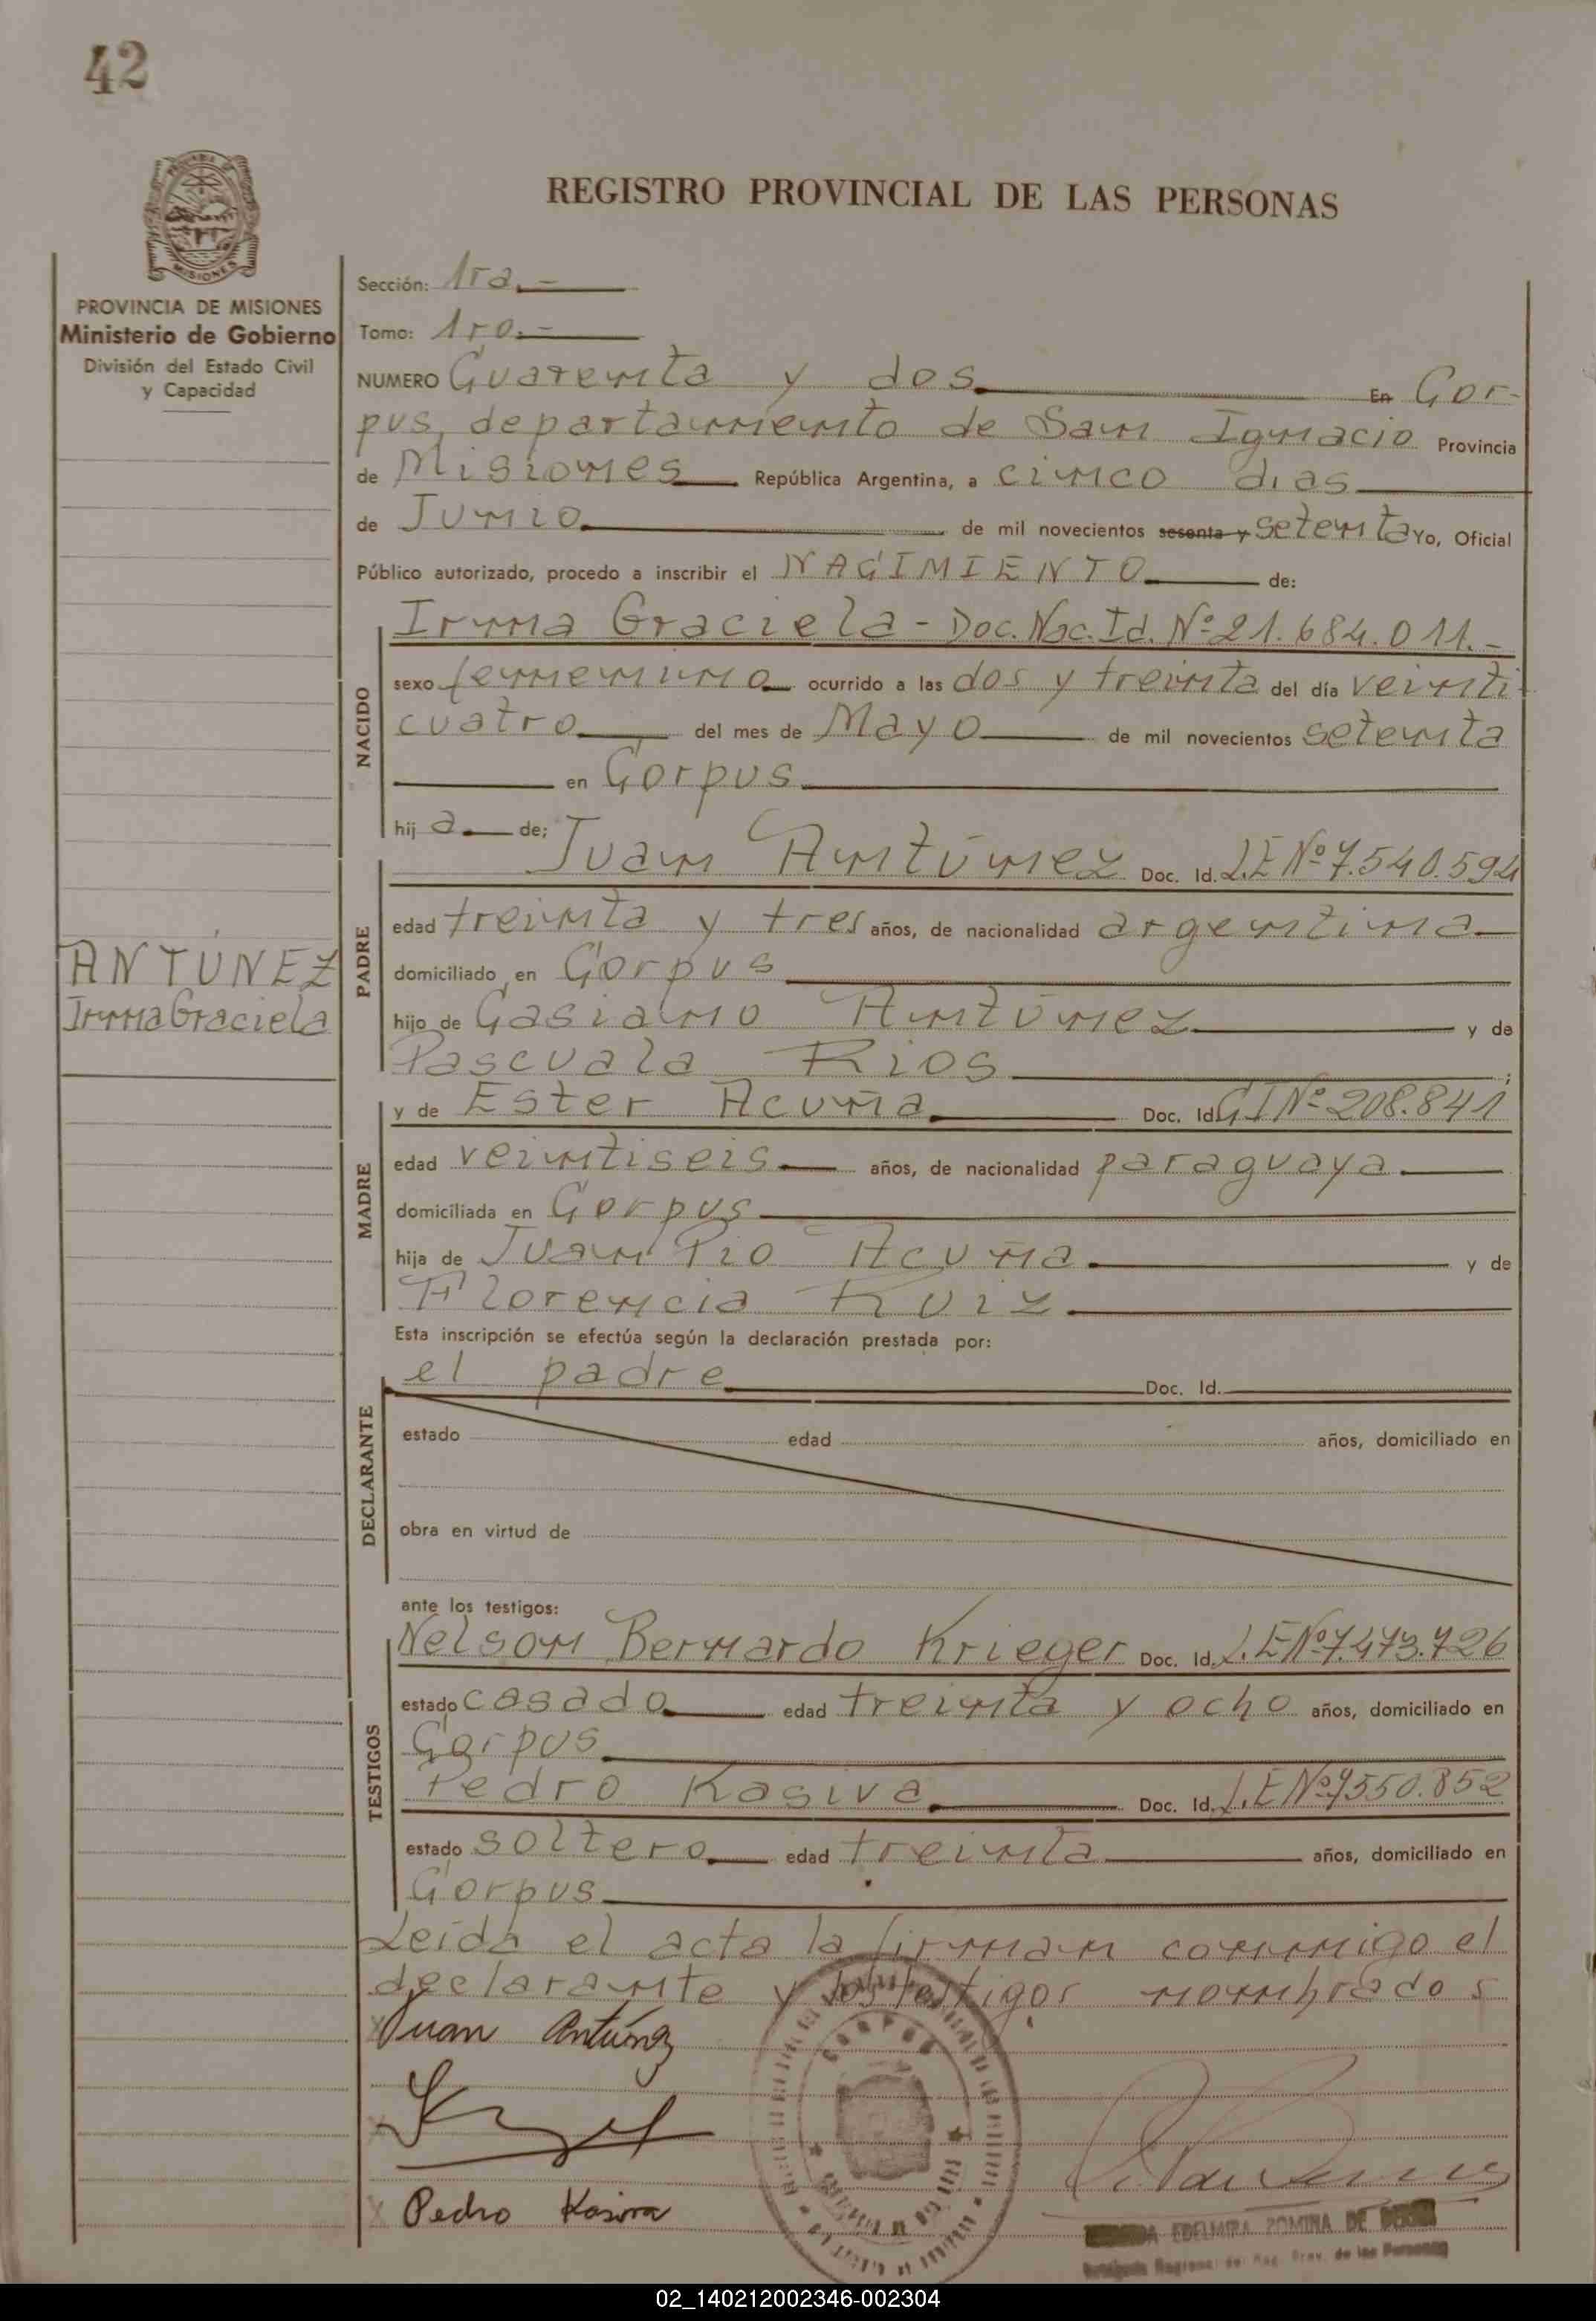 42
REGISTRO PROVINCIAL DE LAS PERSONAS
MISIONES
PROVINCIA DE MISIONES
Ministerio de Gobierno
División del Estado Civil
y Capacidad
Sección: 1ra.-
Tomo: 1ro.-
NUMERO Cuarenta y dos En Cor-
pus, departamento de San Ignacio Provincia
de Misiones República Argentina, a cinco dias
de Junio de mil novecientos sesenta y setenta Yo, Oficial
Público autorizado, procedo a inscribir el NACIMIENTO de:
NACIDO
Irma Graciela - Doc. Nac. Id. Nº 21.684.011.-
sexo femenino ocurrido a las dos y treinta del día veinti
cuatro del mes de Mayo de mil novecientos setenta
en Corpus
hij a de;
PADRE
Juan Antúnez Doc. Id. L.E Nº 7.540.594
edad treinta y tres años, de nacionalidad argentina
domiciliado en Corpus
hijo de Casiano Antúnez y de
Pascuala Rios ;
ANTÚNEZ
Irma Graciela
MADRE
y de Ester Acuña Doc. Id. C I Nº 208.841
edad veintiseis años, de nacionalidad paraguaya
domiciliada en Corpus
hija de Juan Pio Acuña y de
Florencia Ruiz
Esta inscripción se efectúa según la declaración prestada por:
DECLARANTE
el padre Doc. Id.
estado edad años, domiciliado en
obra en virtud de
ante los testigos:
TESTIGOS
Nelson Bernardo Krieger Doc. Id. L.E Nº 7.473.726
estado casado edad treinta y ocho años, domiciliado en
Corpus
Pedro Kasiva Doc. Id. L.E Nº 7550.852
estado soltero edad treinta años, domiciliado en
Corpus
Leída el acta la firman conmigo el
declarante y los testigos nombrados
Juan Antúnez
Pedro Kasiva
CORPUS
EDELMIRA ROMINA DE
de las Personas
02_140212002346-002304